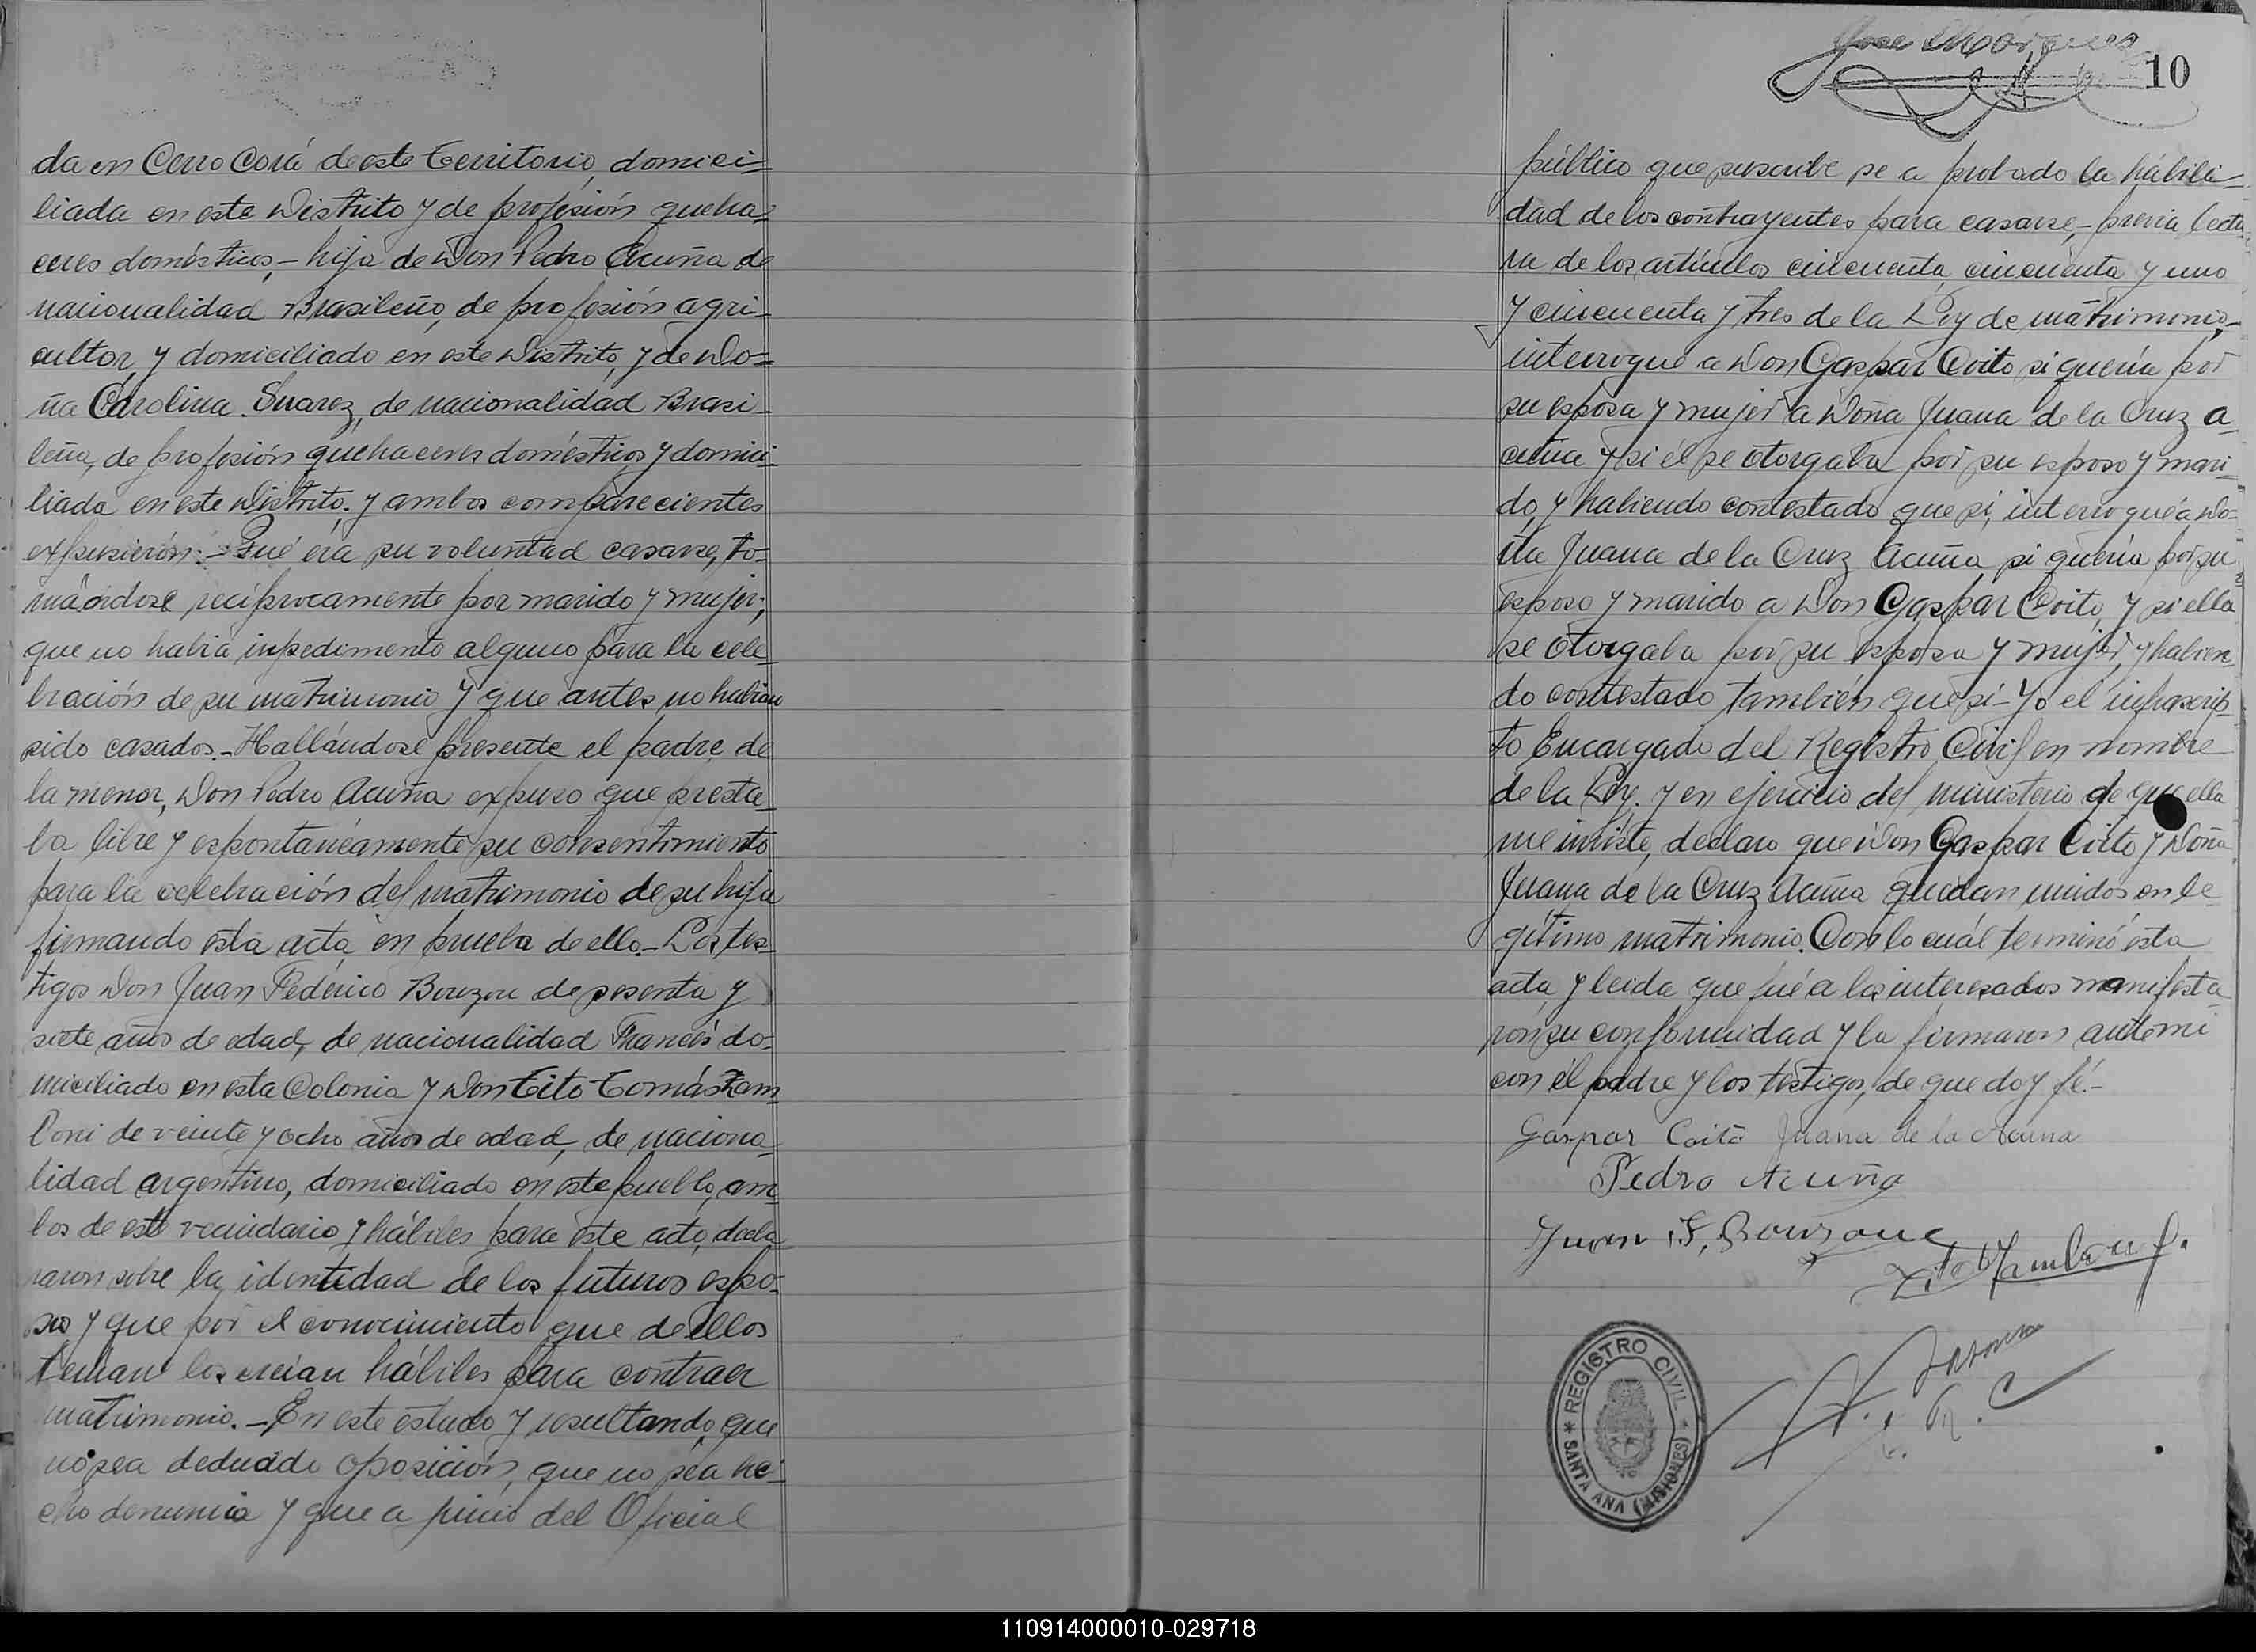 da en Cerro Corá de este Territorio, domici-
liada en este Distrito y de profesión queha-
ceres domésticos,- hija de Don Pedro Acuña de
nacionalidad Brasileño, de profesión agri-
cultor, y domiciliado en este Distrito, y de Do-
ña Carolina Suarez, de nacionalidad Brasi-
leña, de profesión quehaceres domésticos y domici-
liada en este Distrito. y ambos comparecientes
expusierón:- Qué era su voluntad casarse, to-
mándose recíprocamente por marido y mujer;
que no habia inpedimento alguno para la cele-
bración de su matrimonio y que antes no habian
sido casados.- Hallándose presente el padre de
la menor, Don Pedro Acuña expuso que presta-
ba libre y espontanéamente su consentimiento
para la celebración del matrimonio de su hija
firmando esta acta en prueba de ello.- Los tes-
tigos Don Juan Federico Bouzon de sesenta y
siete años de edad, de nacionalidad Francés do-
miciliado en esta Colonia y Don Tito Tomás Zam-
boni de veinte y ocho años de edad, de naciona-
lidad argentino, domiciliado en este pueblo, am-
bos de este vecindario y hábiles para este acto, decla-
raron sobre la identidad de los futuros espo-
sos y que por el conocimiento que de ellos
tenian los creían hábiles para contraer
matrimonio.- En este estado y resultando que
no sea deducido oposición, que no sea he-
cho denuncia y que a juicio del Oficial
Jose Márques
10
público que suscribe se a probado la hábili-
dad de los contrayentes para casarse,- previa lectu-
ra de los artículos cincuenta, cincuenta y uno
y cincuenta y tres de la Ley de matrimonio,-
interrogué a Don Gaspar Coito si quería por
su esposa y mujer a Doña Juana de la Cruz A-
cuña y si él se otorgaba por su esposo y mari-
do, y habiendo contestado que si, interrogué a Do-
ña Juana de la Cruz Acuña si quería por su
esposo y marido a Don Gaspar Coito, y si ella
se otorgaba por su esposa y mujer, y habien-
do contestado también que sí- Yo el infrascrip-
to Encargado del Registro Civil en nombre
de la Ley. y en ejercicio del ministerio de que ella
me inviste, declaro que Don Gaspar Coito y Doña
Juana de la Cruz Acuña quedan unidos en le-
gítimo matrimonio. Con lo cuál terminó esta
acta y leida que fué a los interesados manifesta
ron su conformidad y la firmaron antemi
con el padre y los testigos, de que doy fé.-
Gaspar Coito Juana de la Acuna
Pedro Acuña
Juan F. Bouzone
Tito Zamboni.
REGISTRO CIVIL
SANTA ANA (MISIONES)
E. R. C